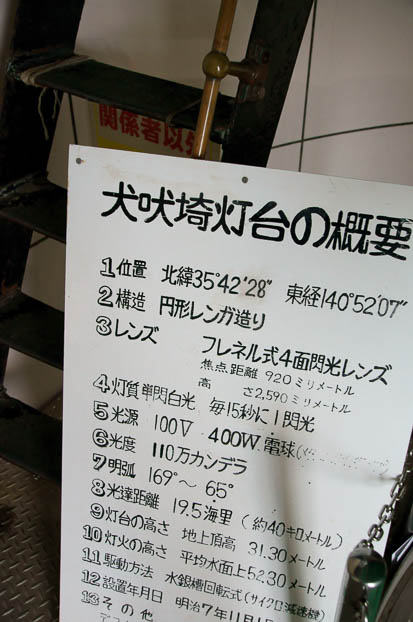 関係者以外
犬吠埼灯台の概要
1 位置 北緯35°42′28″ 東経140°52′07″
2 構造 円形レンガ造り
3 レンズ フレネル式4面閃光レンズ
焦点距離 920ミリメートル
高さ2,590ミリメートル
4 灯質 単閃白光 毎15秒に1閃光
5 光源 100V 400W 電球
6 光度 110万カンデラ
7 明弧 169°～65°
8 光達距離 19.5海里(約40キロメートル)
9 灯台の高さ 地上頂高 31.30メートル
10 灯火の高さ 平均水面上52.30メートル
11 駆動方法 水銀槽回転式(サイクロ減速機)
12 設置年月日 明治7年11月1
13 その他